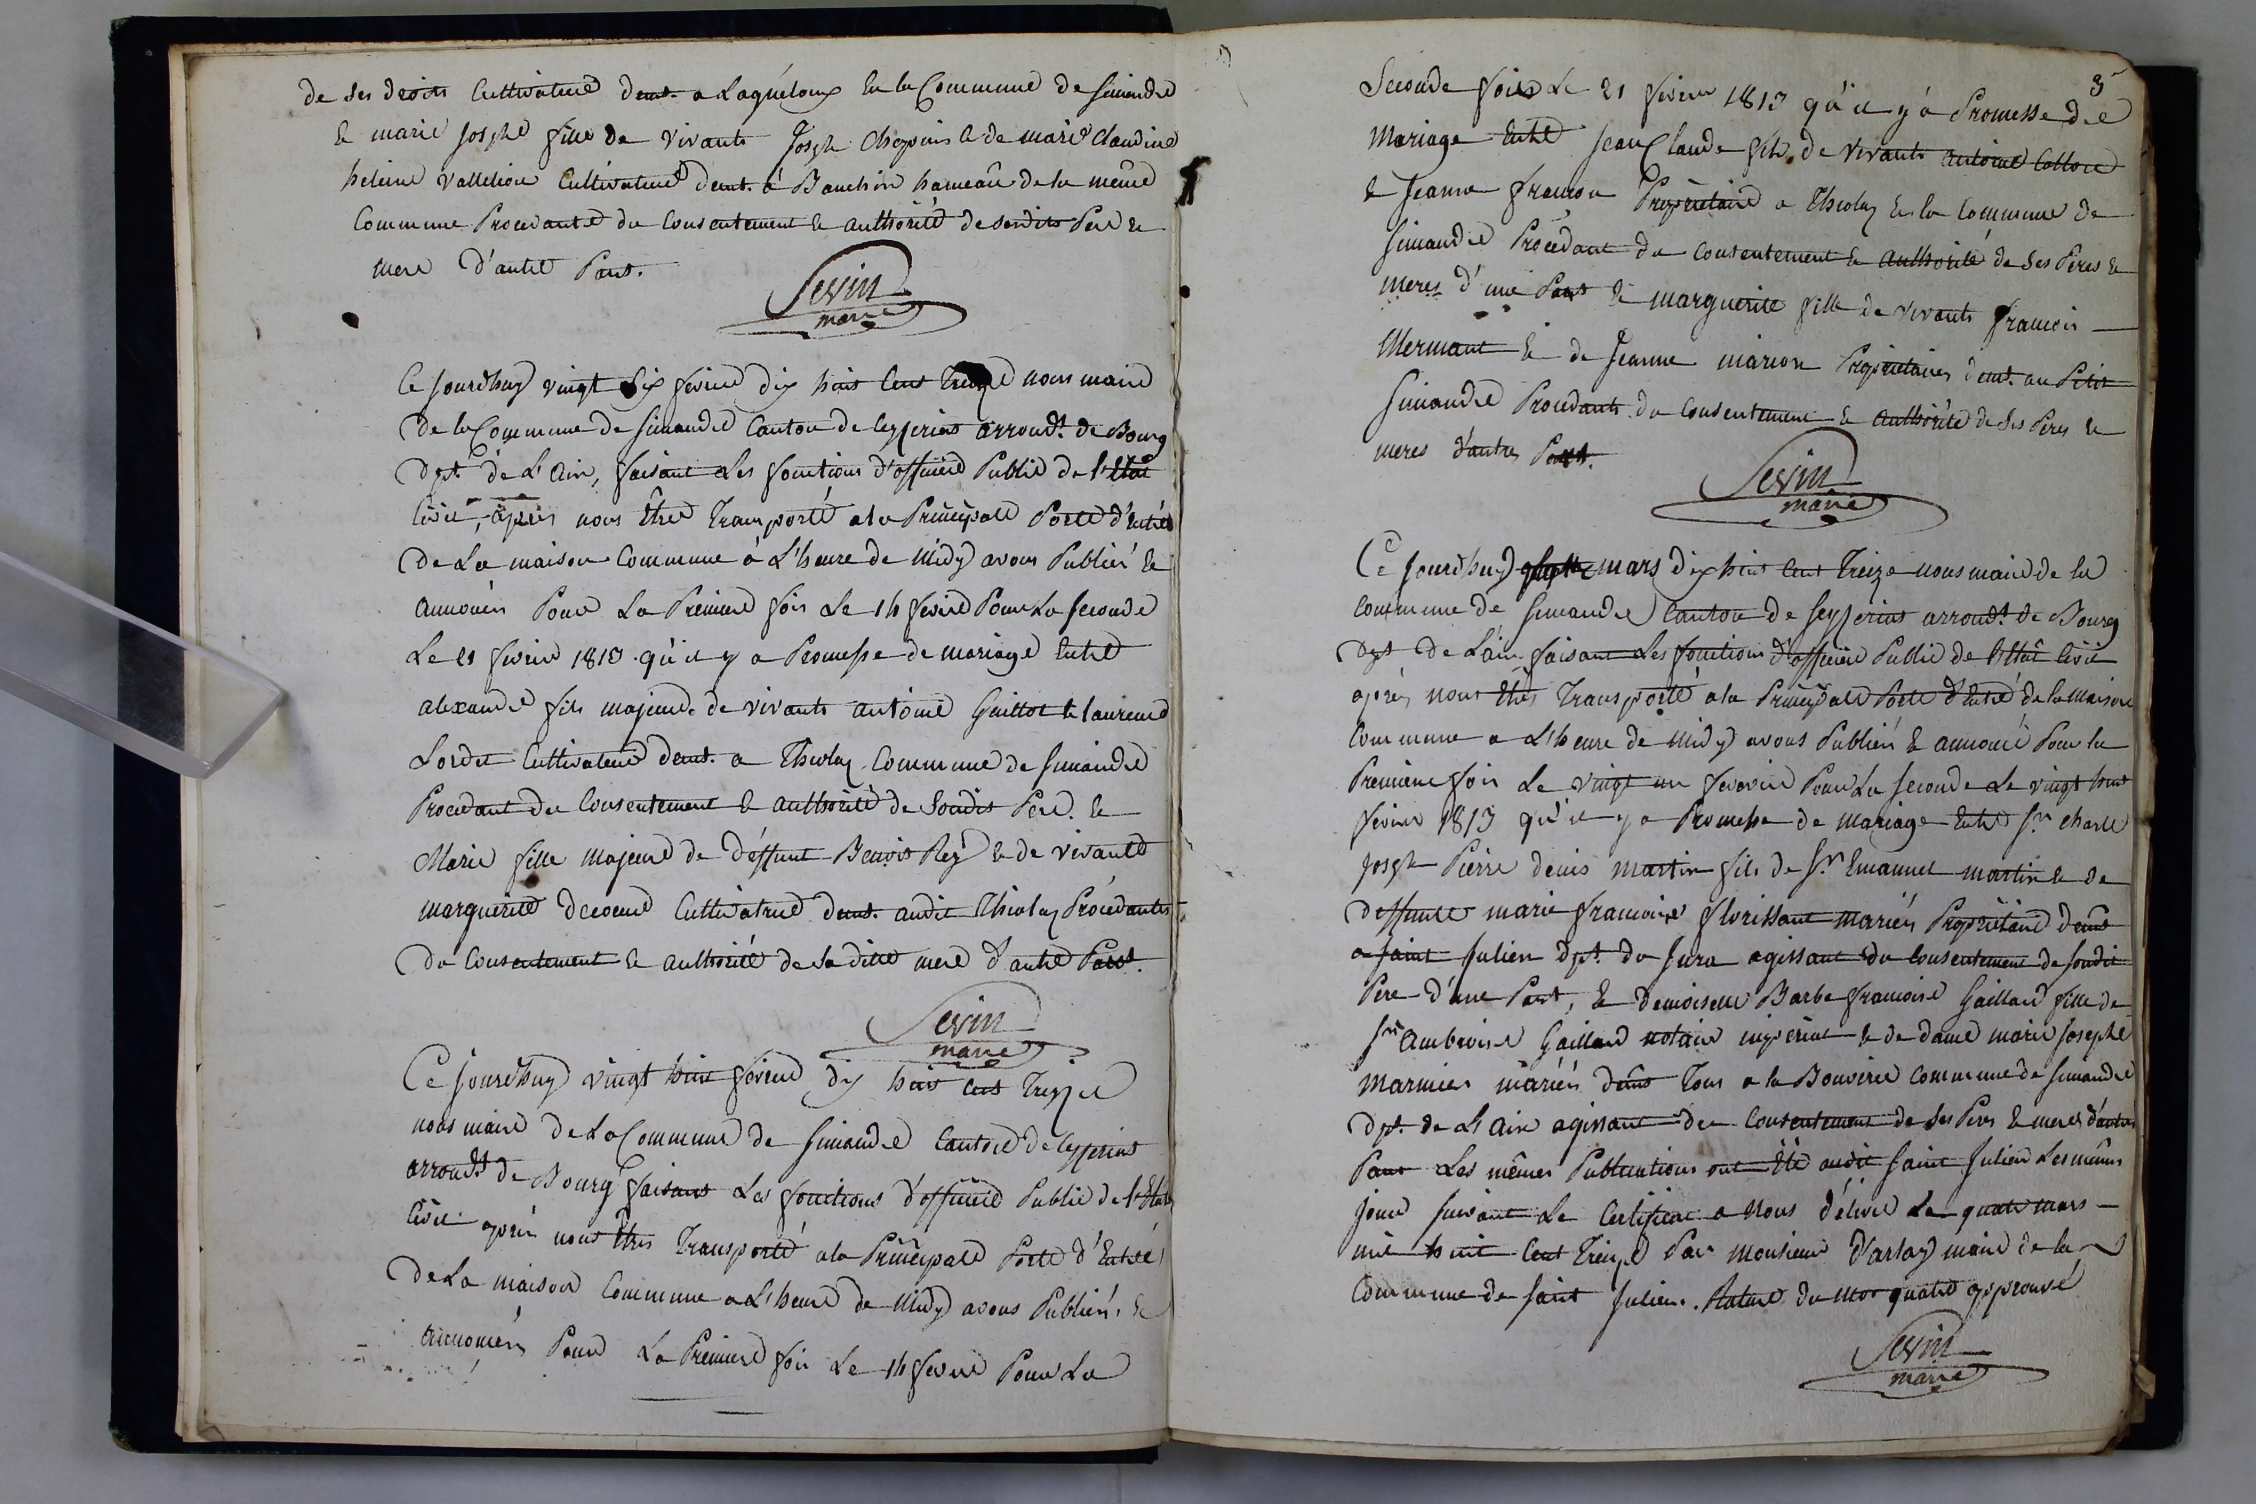 de ses droits Cultivateur demt. a Laquéloux En la Commune de Simandre
& marie Josphe fille de Vivants Josph Chapuis & de marie Claudine
heleine Cultivateur demt. á Banchin hameau de la même
Commune Procedante du Consentement & authorité de sesdits Pere &
mere d'autre Part.
Sevin
maire
Ce Jourdhuy vingt Six fevrier dix huit Cent Treize nous maire
De la Commune de Simandre Canton de Ceyzeriat arrondt. de Bourg
Dpt de L'ain, faisant Les fonctions d'officier Public de l'Etat
Civil, après nous Être Transporté a la Principale Porte d'Entrée
De La maison Commune à L'heure de Midy avons Publiér &
annoncér Pour La Premiere fois Le 14 fevrier Pour La Seconde
Le 21 fevrier 1813 qu'il y a Promesse de mariage Entre
alexandre fils majeur de vivants antoine Guillot & laurence
Lordet Cultivateur demt. a Thiolay Commune de Simandre
Procedant du Consentement & authorité de Sondit Pere &
Marie fille majeure de déffunt Benoit Rey & de vivante
marguerite Cultivatrice demt. audit Thiolay Procédante
du Consentement & authorité de Sa ditte mere d'autre Part.
Sevin
maire
Ce Jourdhuy vingt huit fevrier dix huit Cent Treize
nous maire De La Commune de Simandre Canton de Ceyzeriat
arrondt de Bourg faisant Les fonctions d'officier Public de l'Etat
Civil après nous Être Transporté a la Principale Porte d'Entrée
De La maison Commune a L'heure de Midy avons Publiér &
annoncér Pour La Premiere fois Le 14 fevrier Pour La
3
Seconde fois Le 21 fevrier 1813 qu'il y'a Promesse de
Mariage Entre Jean Claude fils de Vivants antoine
& Jeanne francon Propriétaire a Thiolay En la Commune de
Simandre Procédant du Consentement & authorité de Ses Peres &
meres d'une Part & marguerite fille de vivants francois
Mermant & de Jeanne marion Propriétaires demt. au Petit
Simandre Procedants du Consentement & authorité de Ses Peres &
meres d'autres Part.
Sevin
maire
Ce Jourdhuy quatre mars dix huit Cent Treize nous maire de la
Commune de Simandre Canton de Seyzeriat arrondt. de Bourg
Dpt de L'ain faisant Les fonctions d'officier Public de l'Etat Civil
après nous Etre Transporté a la Principale Porte d'Entré de la Maison
Commune a L'heure de Midy avons Publiér & annoncé Pour la
Premiere fois Le vingt un fevrier Pour La Seconde Le vingt huit
fevrier 1813 qu'il y a Promesse de Mariage Entre Sr. Charle
Josph Pierre denis Martin fils de Sr. Emanuel martin & de
deffunte marie francoise florissant mariér Propriétaire demt
a Saint Julien Dpt. du Jura agissant du Consentement de Sondit
Pere d'une Part, & demoiselle Barbe francoise Gaillard fille de
Sr. Ambroise Gaillard notaire imperial & de dame marie Josephe
Marmier mariér demt Tous a la Bouverie Commune de Simandre
Dpt. de L'ain agissant du Consentement de Ses Peres & meres d'autres
Part Les mêmes Publications ont Eté audit Saint Julien Les mêmes
Jours Suivant Le Certificat a Nous délivré Le quatre mars
mil huit Cent Treize Par Monsieur d'arlay maire de la
Commune de Saint Julien. Rature du mot quatre approuvé
Sevin
maire